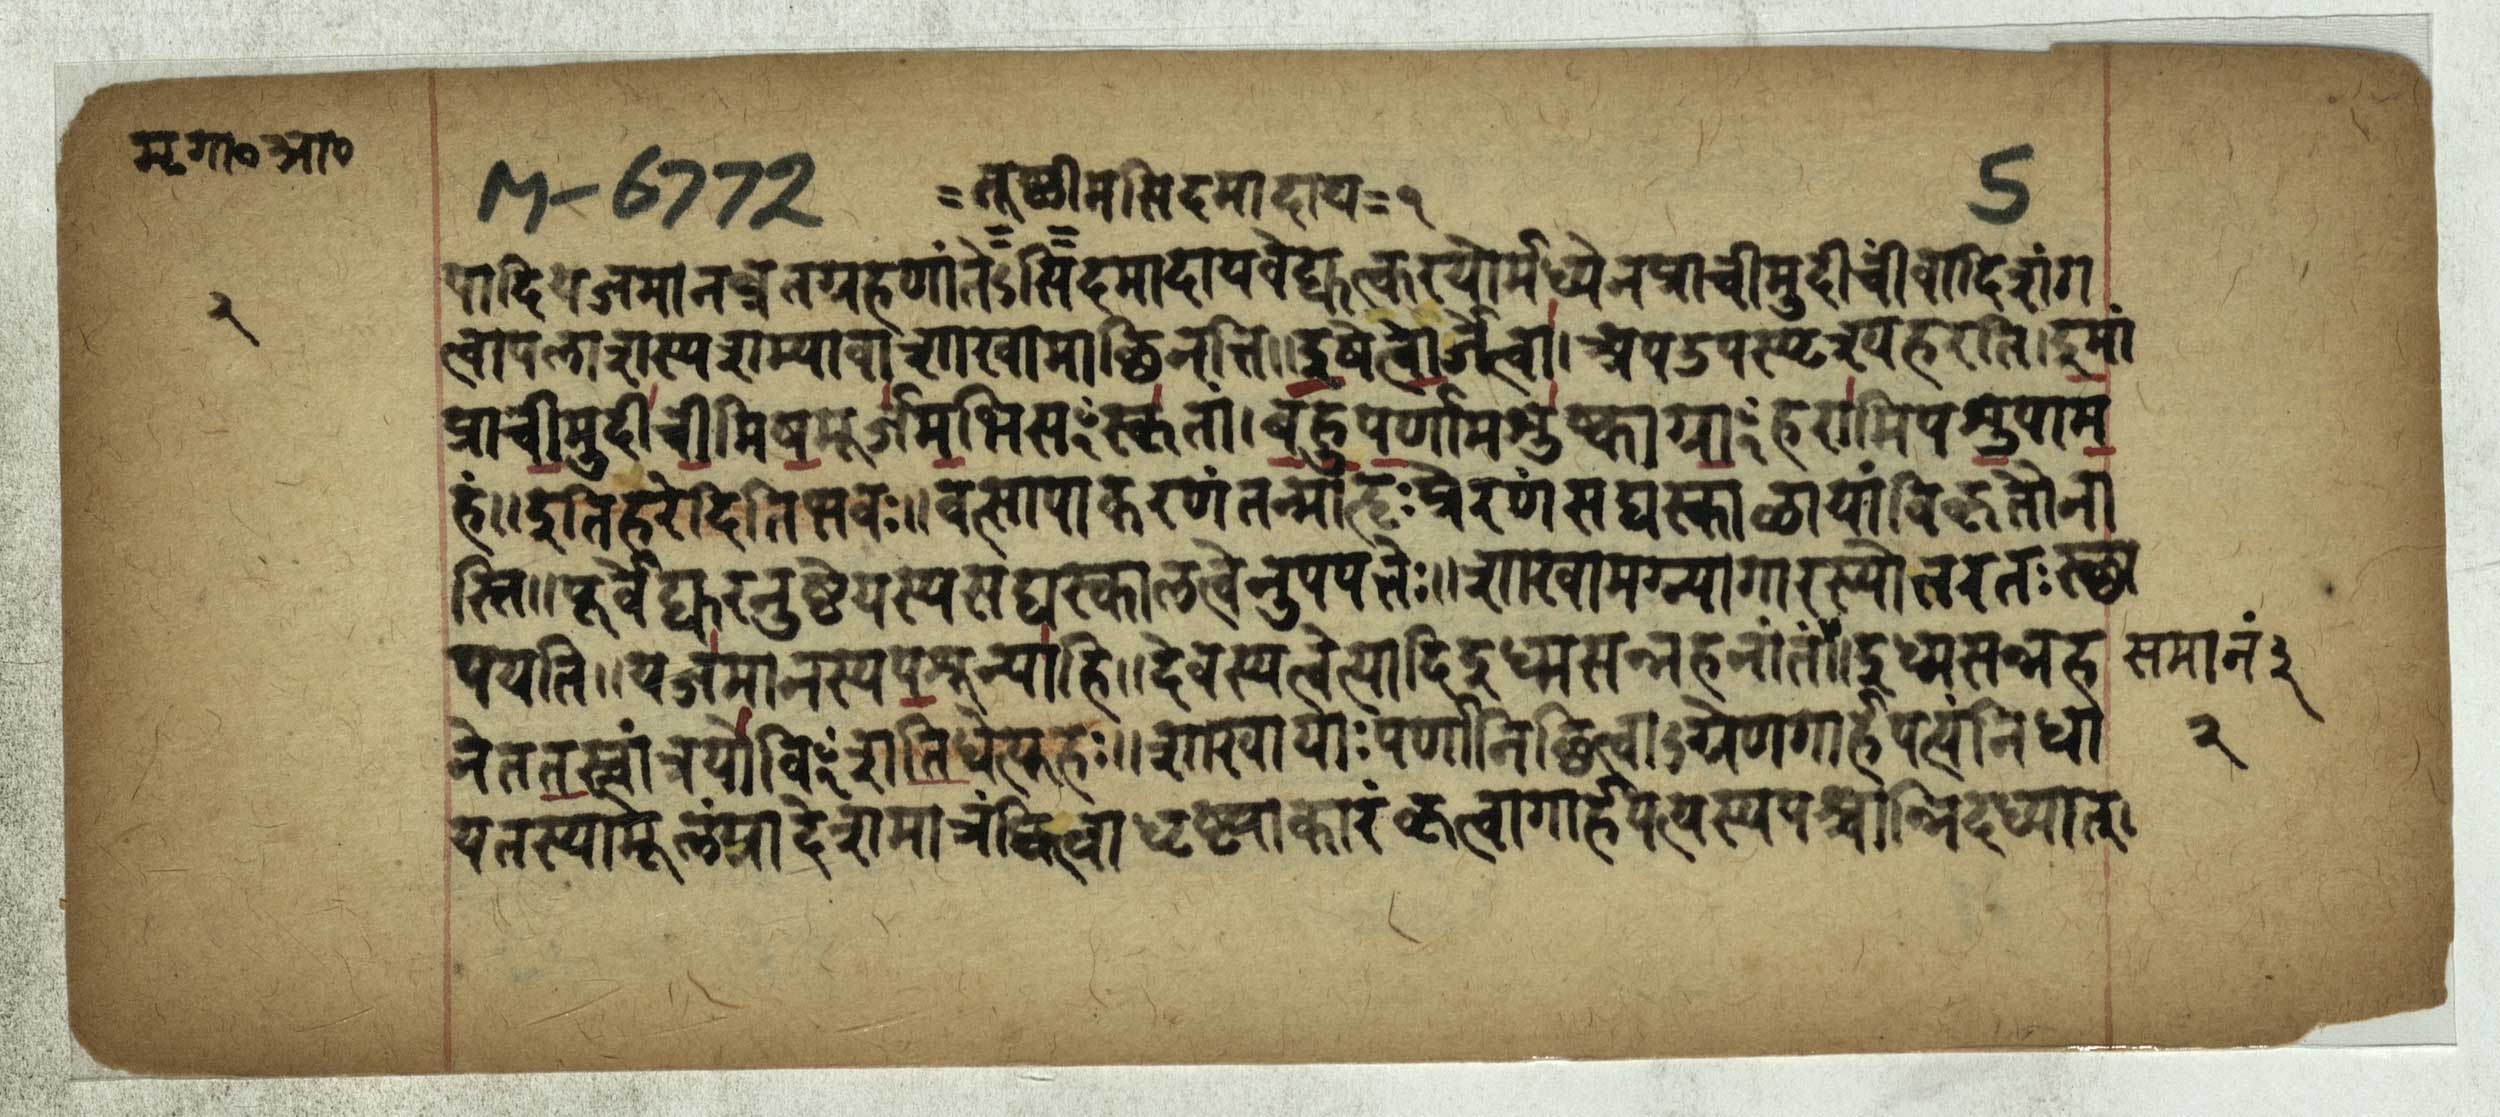 मृगा०आ०
M-6772
=तूष्णीमसिदमादाय=१
5
२
पादियजमानव्रतग्रहणांतेऽसिदमादायवेद्युत्करयोर्मध्येनप्राचीमुदीचीं वादिशंग
त्वापलाशस्यशम्यावाशाखामाछिनत्ति॥इषेत्वोर्जेत्वा।अपउपस्पृश्यहरति।इमां
प्राचीमुदीचीमिषमूर्जमभिसꣳस्कृतां।बहुपर्णामशुष्काग्राꣳहरामिपशुपाम
हं॥इतिहरेदितिभवः॥वत्सापाकरणंतन्मातृःप्रेरणंसद्यस्काळायांविकृतौना
स्ति॥पूर्वेद्युरनुष्ठेयस्यसद्यस्कालत्वेनुपपत्तेः॥शाखामग्न्यागारस्योत्तरतःस्था
पयति॥यजमानस्यपशून्पाहि॥देवस्यत्वेत्यादिइध्मसन्नहनांतं॥इध्मसन्नह
समानं३
नेततस्त्वांत्रयोविꣳशतिधेत्यूहः॥शाखायाःपर्णानिछित्वाऽग्रेणगार्हपत्यंनिधा
२
यतस्यामूलंप्रादेशमात्रंछित्वाधृष्ट्याकारंकृत्वागार्हपत्यस्यपश्चान्निदध्यात्।